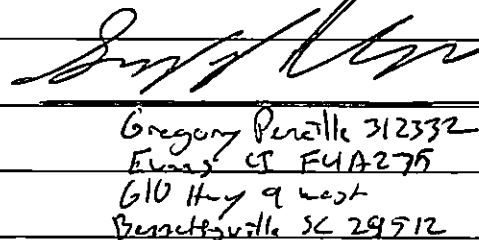 Gregory 312332
Evans CI F4A275
610 Hwy 9 west
Bennettsville SC 29512